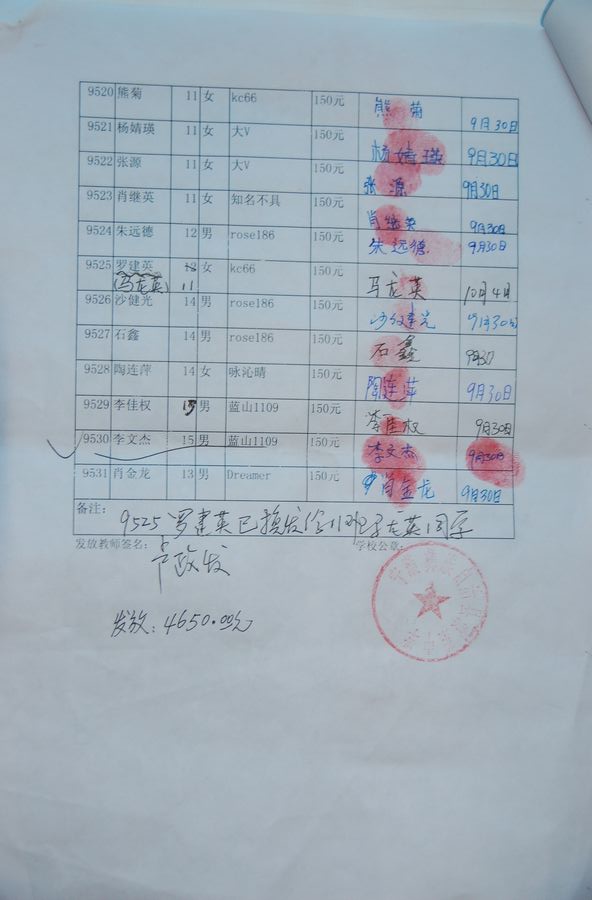 9520 熊菊 11 女 kc66 150元 熊菊 9月30日
9521 杨婧瑛 11 女 大V 150元 杨婧瑛 9月30日
9522 张源 11 女 大V 150元 张源 9月30日
9523 肖继英 11 女 知名不具 150元 肖继英 9月30日
9524 朱远德 12 男 rose186 150元 朱远德 9月30日
9525 罗建英 女 kc66 150元 马龙英 10月4日
(马龙英) 11
9526 沙健光 14 男 rose186 150元 9月30日
9527 石鑫 14 男 rose186 150元 石鑫 9月30
9528 陶连萍 14 女 咏沁晴 150元 陶连萍 9月30日
9529 李佳权 男 蓝山1109 150元 李佳权 9月30日
9530 李文杰 15 男 蓝山1109 150元 李文杰 9月30日
9531 肖金龙 13 男 Dreamer 150元 肖金龙 9月30日
备注: 9525 罗建英已换发给 班马龙英同学
发放教师签名: 学校公章:
发放: 4650.00元